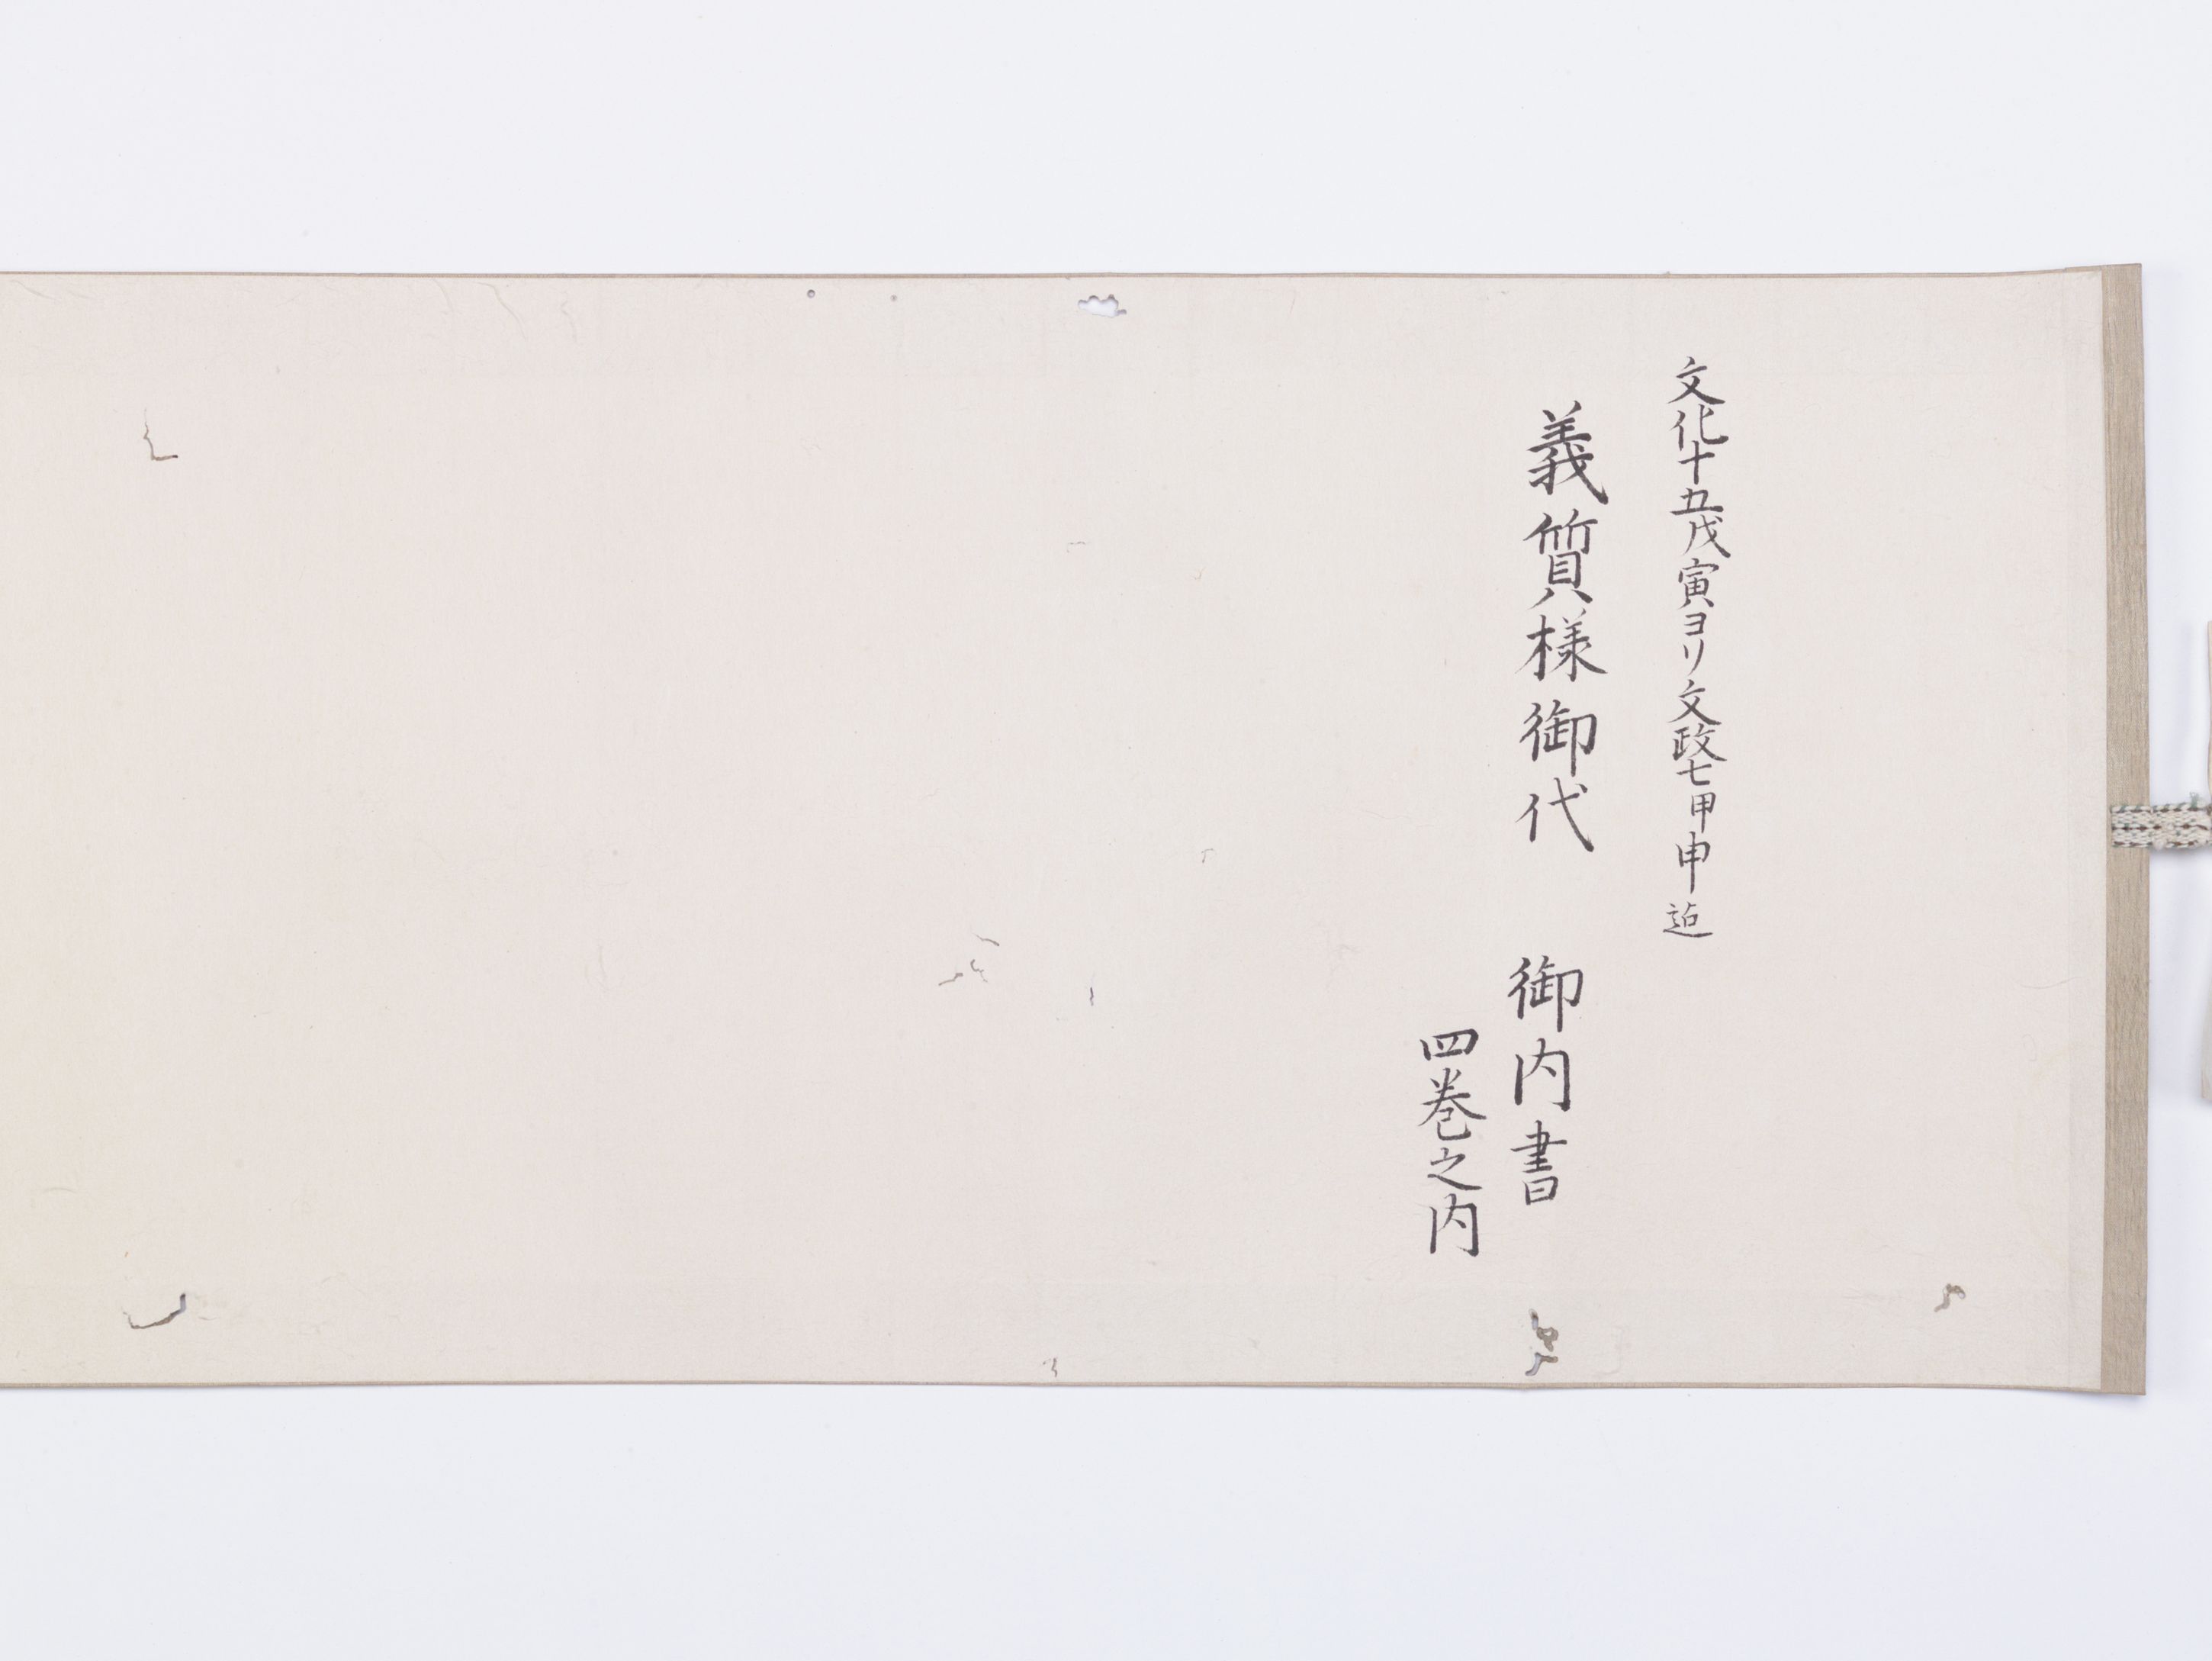 文化十五戊寅ヨリ文政七甲申迠
義質様御代　御内書
四巻之内